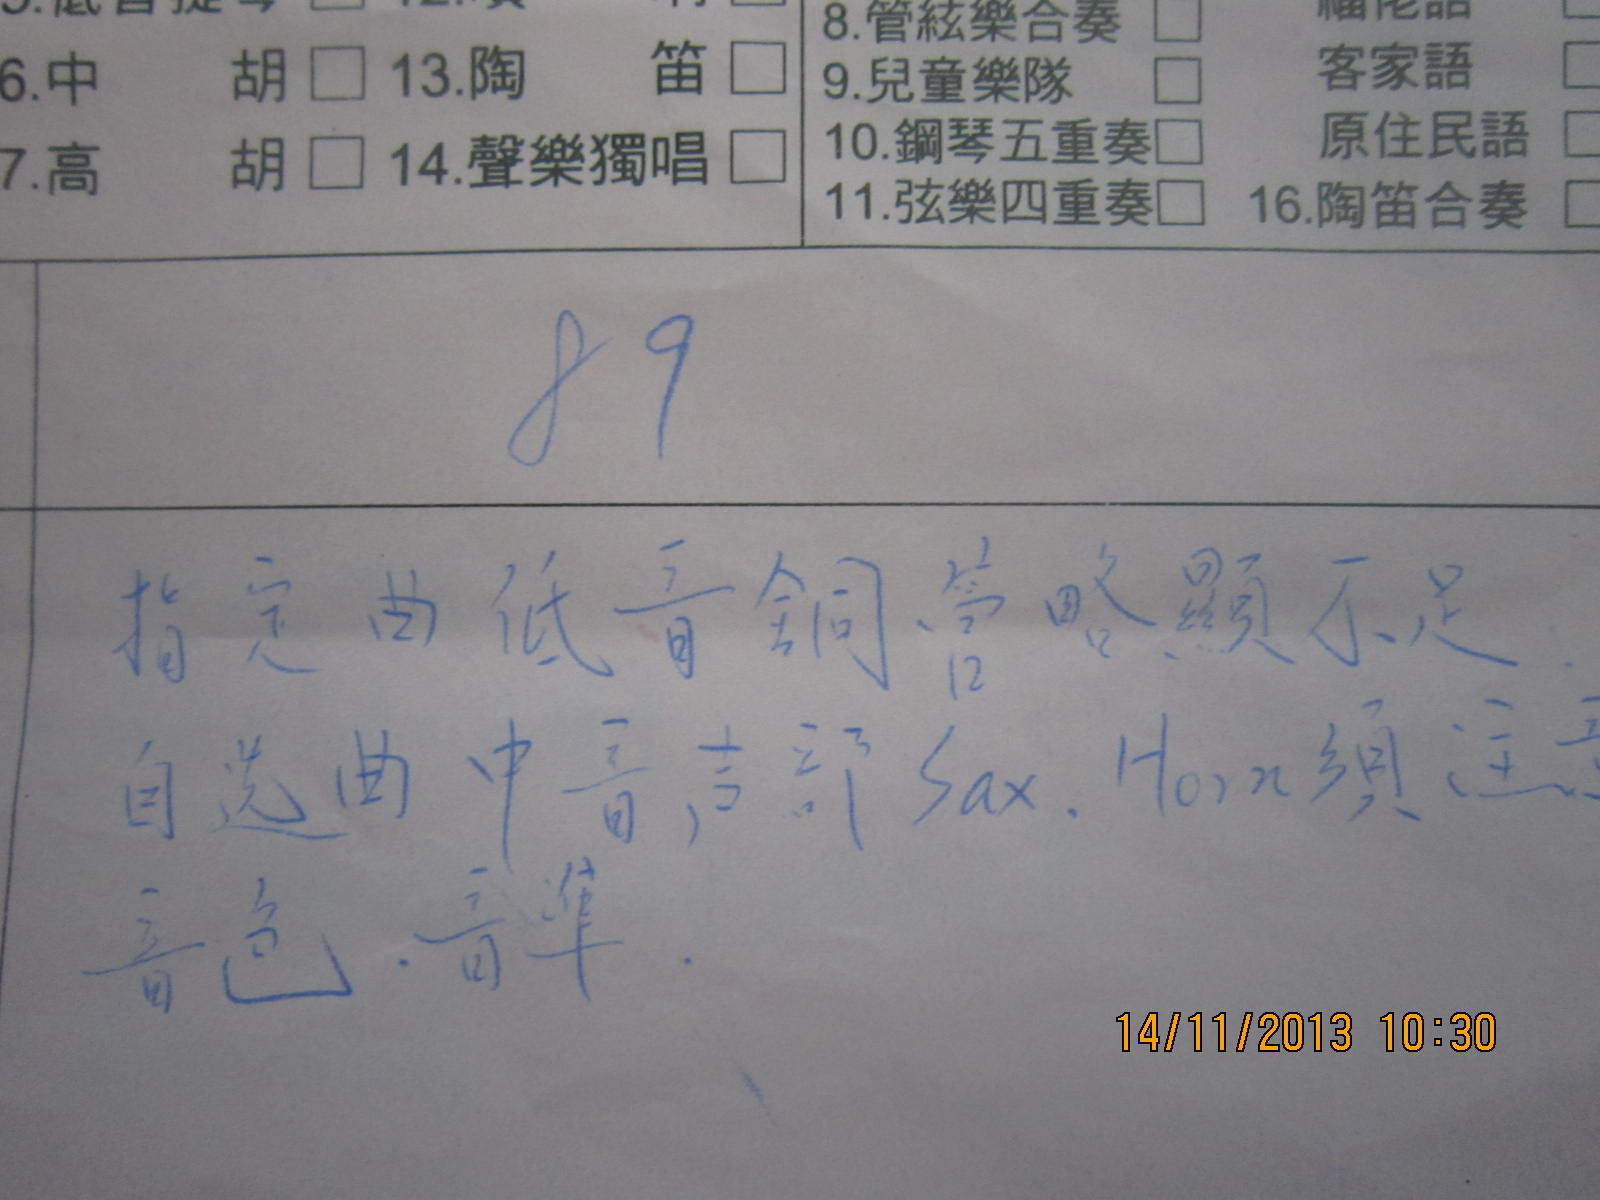 5.低音提琴 □ 12.嗩
8.管絃樂合奏 □ 福佬語 □
6.中 胡 □ 13.陶 笛 □ 9.兒童樂隊 □ 客家語 □
10.鋼琴五重奏 □ 原住民語 □
7.高 胡 □ 14.聲樂獨唱 □ 11.弦樂四重奏 □ 16.陶笛合奏 □
89
指定曲低音銅管略顯不足.
自选曲中音声部 Sax. Horn須注意
音色.音準.
14/11/2013 10:30